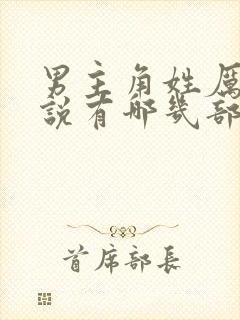 男主角姓厲
說有哪幾部
首席部長